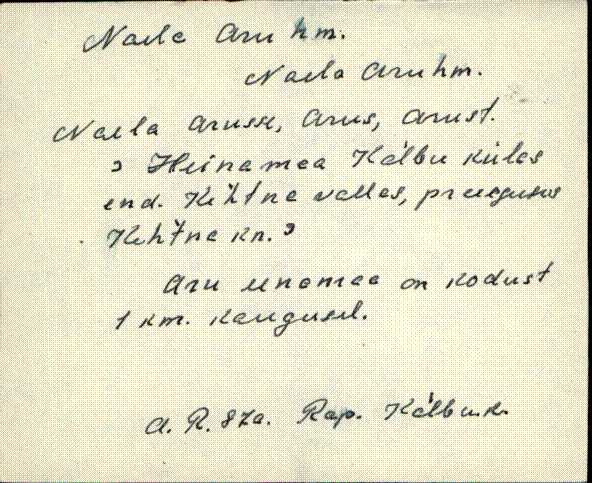 Naela Aru hm.
Naela Aru hm.
Naela Arusse, Arus, Arust.
Heinamaa Kälbu külas
end. Kehtna vallas, praeguses
Kehtna kn.
Aru einamaa on kodust
1 km. kaugusel.
A. R. Rap. Kälbu k.